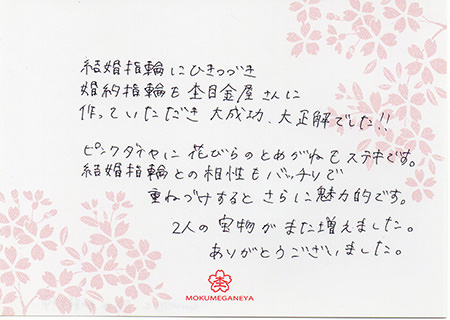 結婚指輪にひきつづき
婚約指輪も杢目金屋さんに
作っていただき 大成功、大正解でした!!
ピンクダイヤに花びらのとめがねもステキです。
結婚指輪との相性もバッチリで
重ねづけするとさらに魅力的です。
2人の宝物がまた増えました。
ありがとうございました。
MOKUMEGANEYA